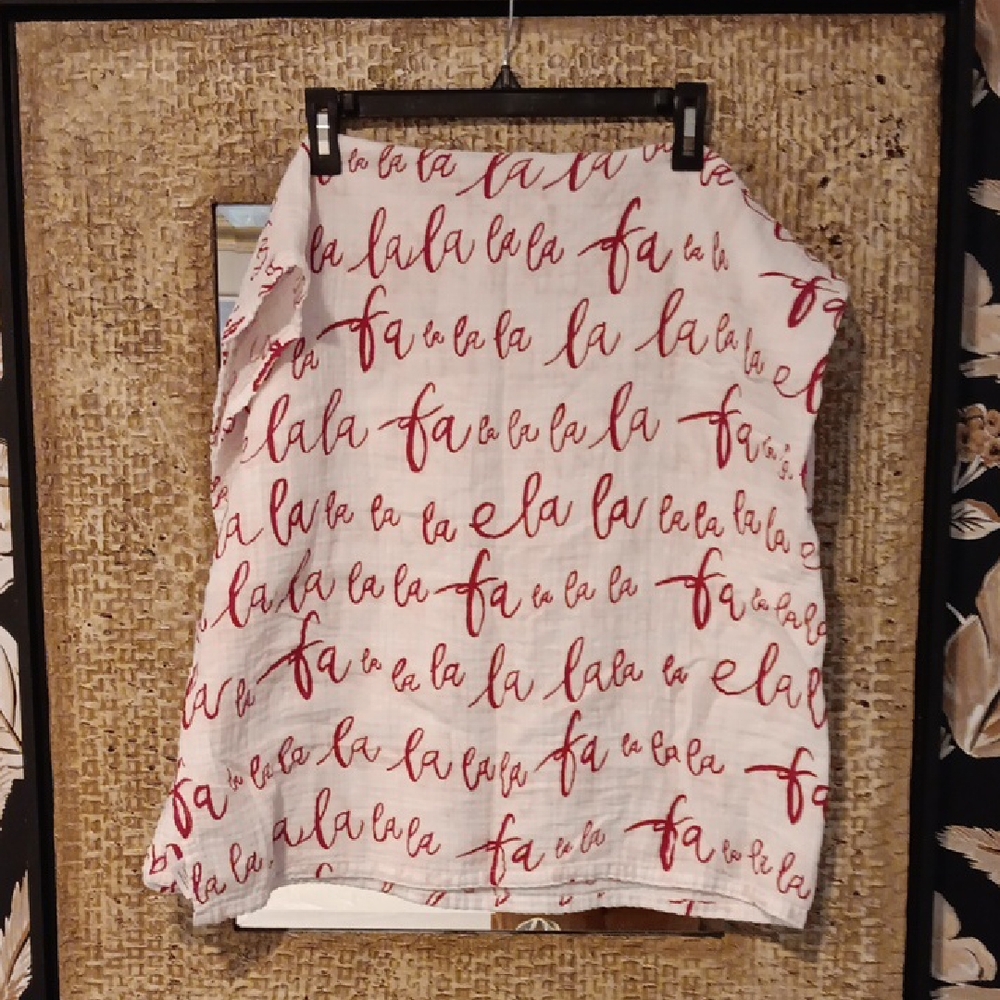 la la la la la la la
la la la la la fa la la
la fa la la la la la la la fa
la la fa la la la la fa la
la la la la la e la la la la la la
la la la la fa la la la fa la la la
la la fa la la la la la la la e la l
fa la la la la la la la la fa la la la fa
la la la la la la fa la la fa la la la